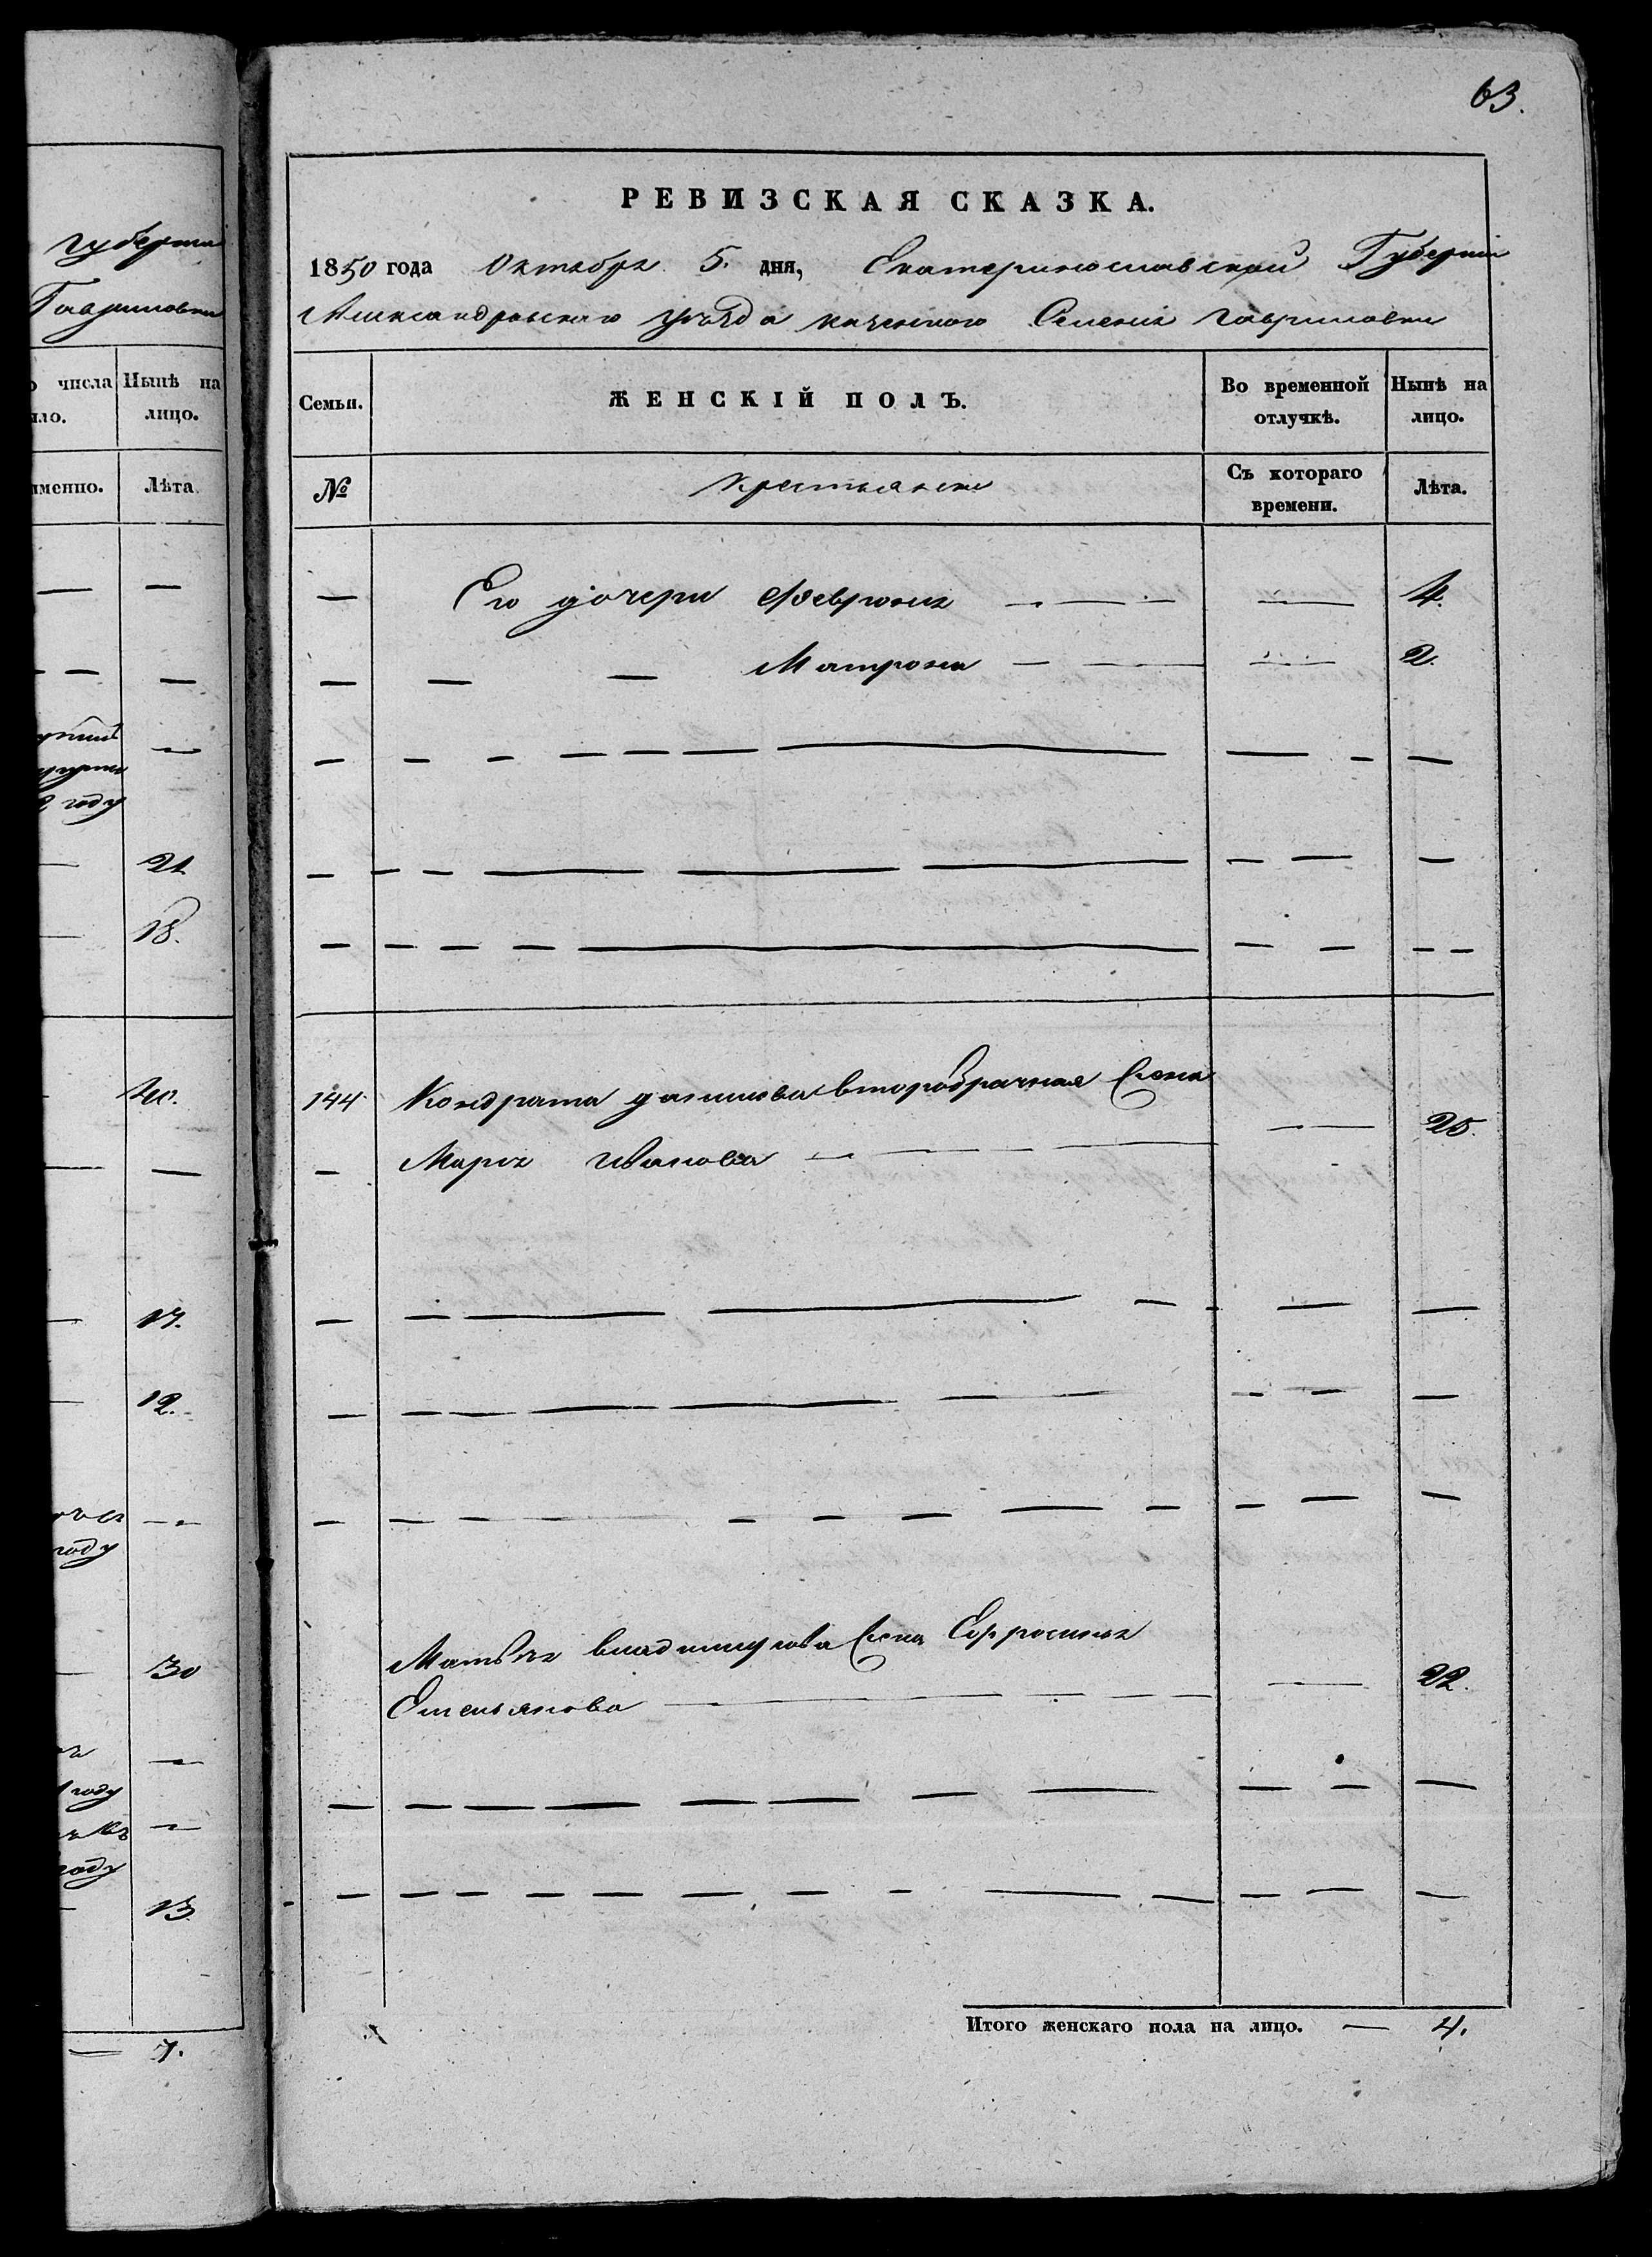 63.
губерніи
Гавриловки
числа Нынѣ на
ло. лицо.
именно. Лѣта
году
21
18.
40.
17.
12.
году
30
году
году
13.
7.
РЕВИЗСКАЯ СКАЗКА.
1850 года Октября 5. дня, Екатеринославской Губерніи
Александровскаго уѣзда казенного Селенія Гавриловки
Семьи. ЖЕНСКІЙ ПОЛЪ. Во временной отлучкѣ. Нынѣ на лицо.
№ Крестьянки Съ котораго времени. Лѣта.
— Его дочери Феврония — — 4.
— — — Матрона — — 2.
144 Кондрата данилова второбрачная Жена
— Марія Иванова — — 25.
Матвѣя владимирова Жена Ефросинья
Емельянова — — 22.
Итого женскаго пола на лицо. — 4.